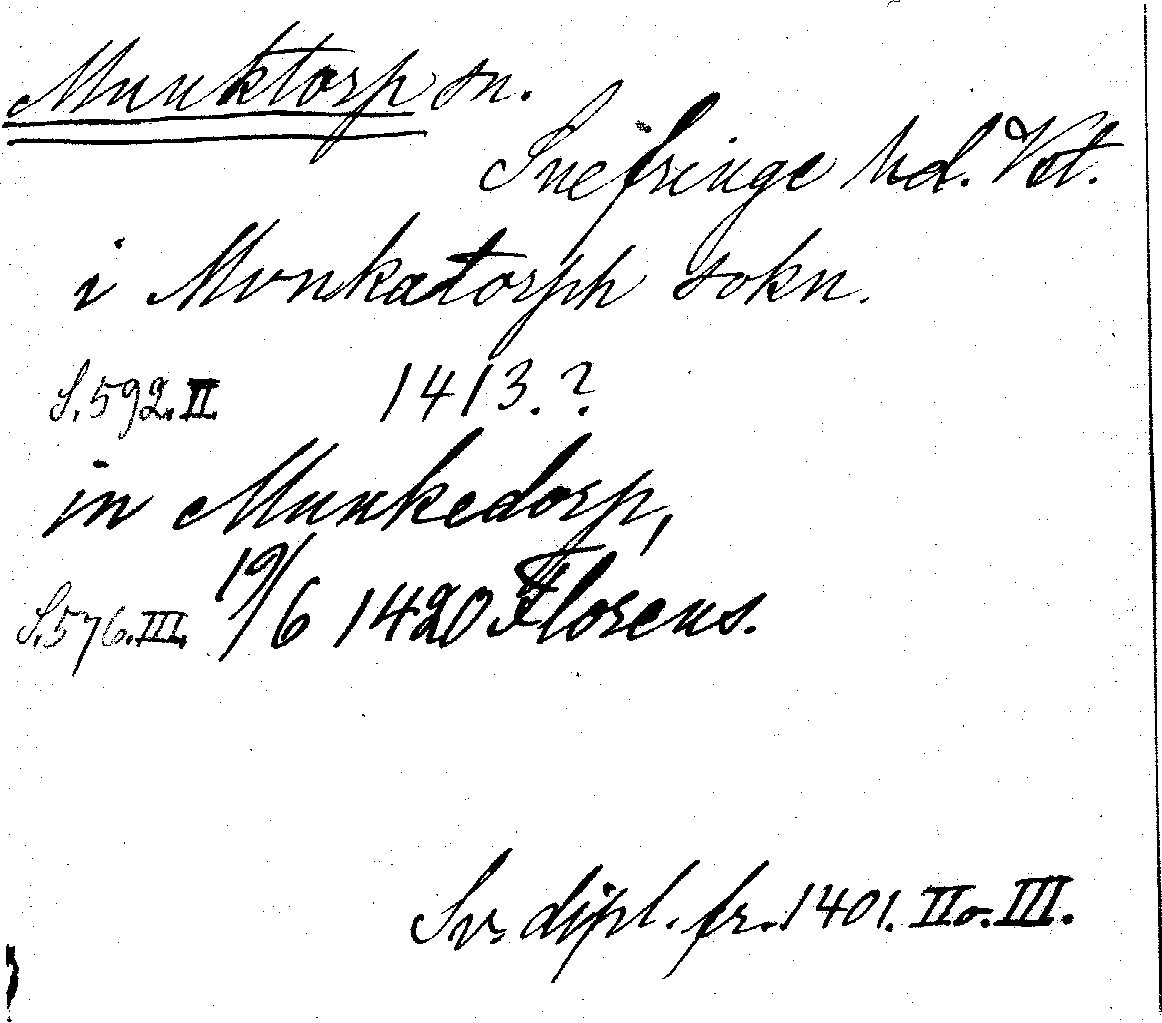 Munktorp sn.
Snefringe hd. Vstt.
i Munkatorph sokn.
S. 592. II 1413. ?
in Munkedorp,
S. 576. III. 19/6 1420 Florens.
Sv. dipl. fr. 1401. II o. III.